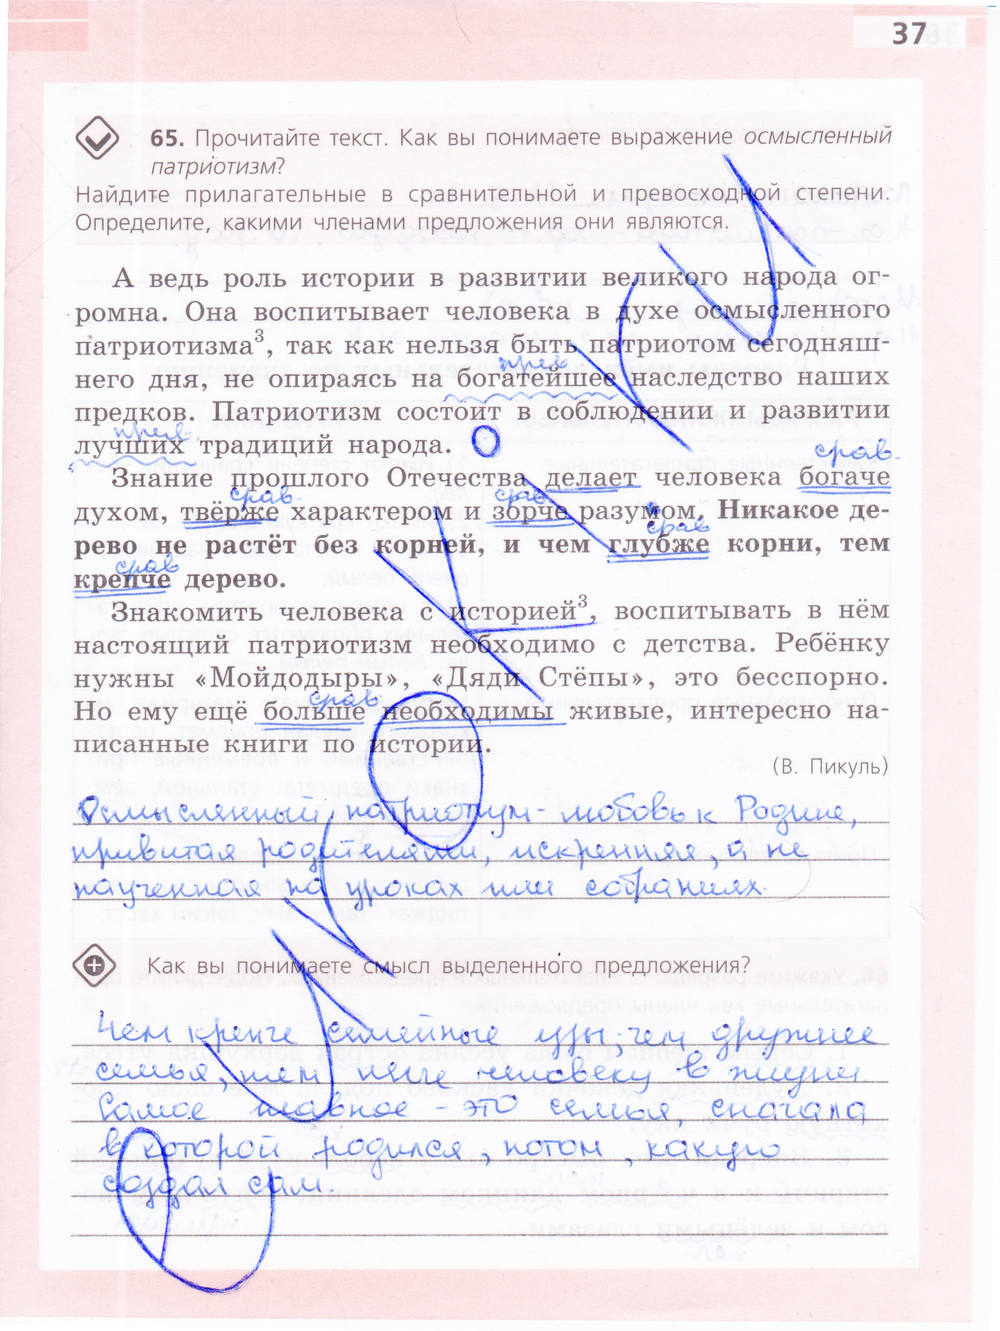 37
65. Прочитайте текст. Как вы понимаете выражение осмысленный
патриотизм?
Найдите прилагательные в сравнительной и превосходной степени.
Определите, какими членами предложения они являются.
А ведь роль истории в развитии великого народа ог-
ромна. Она воспитывает человека в духе осмысленного
патриотизма³, так как нельзя быть патриотом сегодняш-
прев
него дня, не опираясь на богатейшее наследство наших
предков. Патриотизм состоит в соблюдении и развитии
прев
лучших традиций народа.
срав.
Знание прошлого Отечества делает человека богаче
срав. срав.
духом, твёрже характером и зорче разумом. Никакое де-
срав
рево не растёт без корней, и чем глубже корни, тем
срав
крепче дерево.
Знакомить человека с историей³, воспитывать в нём
настоящий патриотизм необходимо с детства. Ребёнку
нужны «Мойдодыры», «Дяди Стёпы», это бесспорно.
срав
Но ему ещё больше необходимы живые, интересно на-
писанные книги по истории.
(В. Пикуль)
Осмысленный патриотизм - любовь к Родине,
привитая родителями, искренняя, а не
заученная на уроках или собраниях.
Как вы понимаете смысл выделенного предложения?
Чем крепче семейные узы, чем дружнее
семья, тем легче человеку в жизни
Самое главное - это семья, сначала
в которой родился, потом, какую
создал сам.